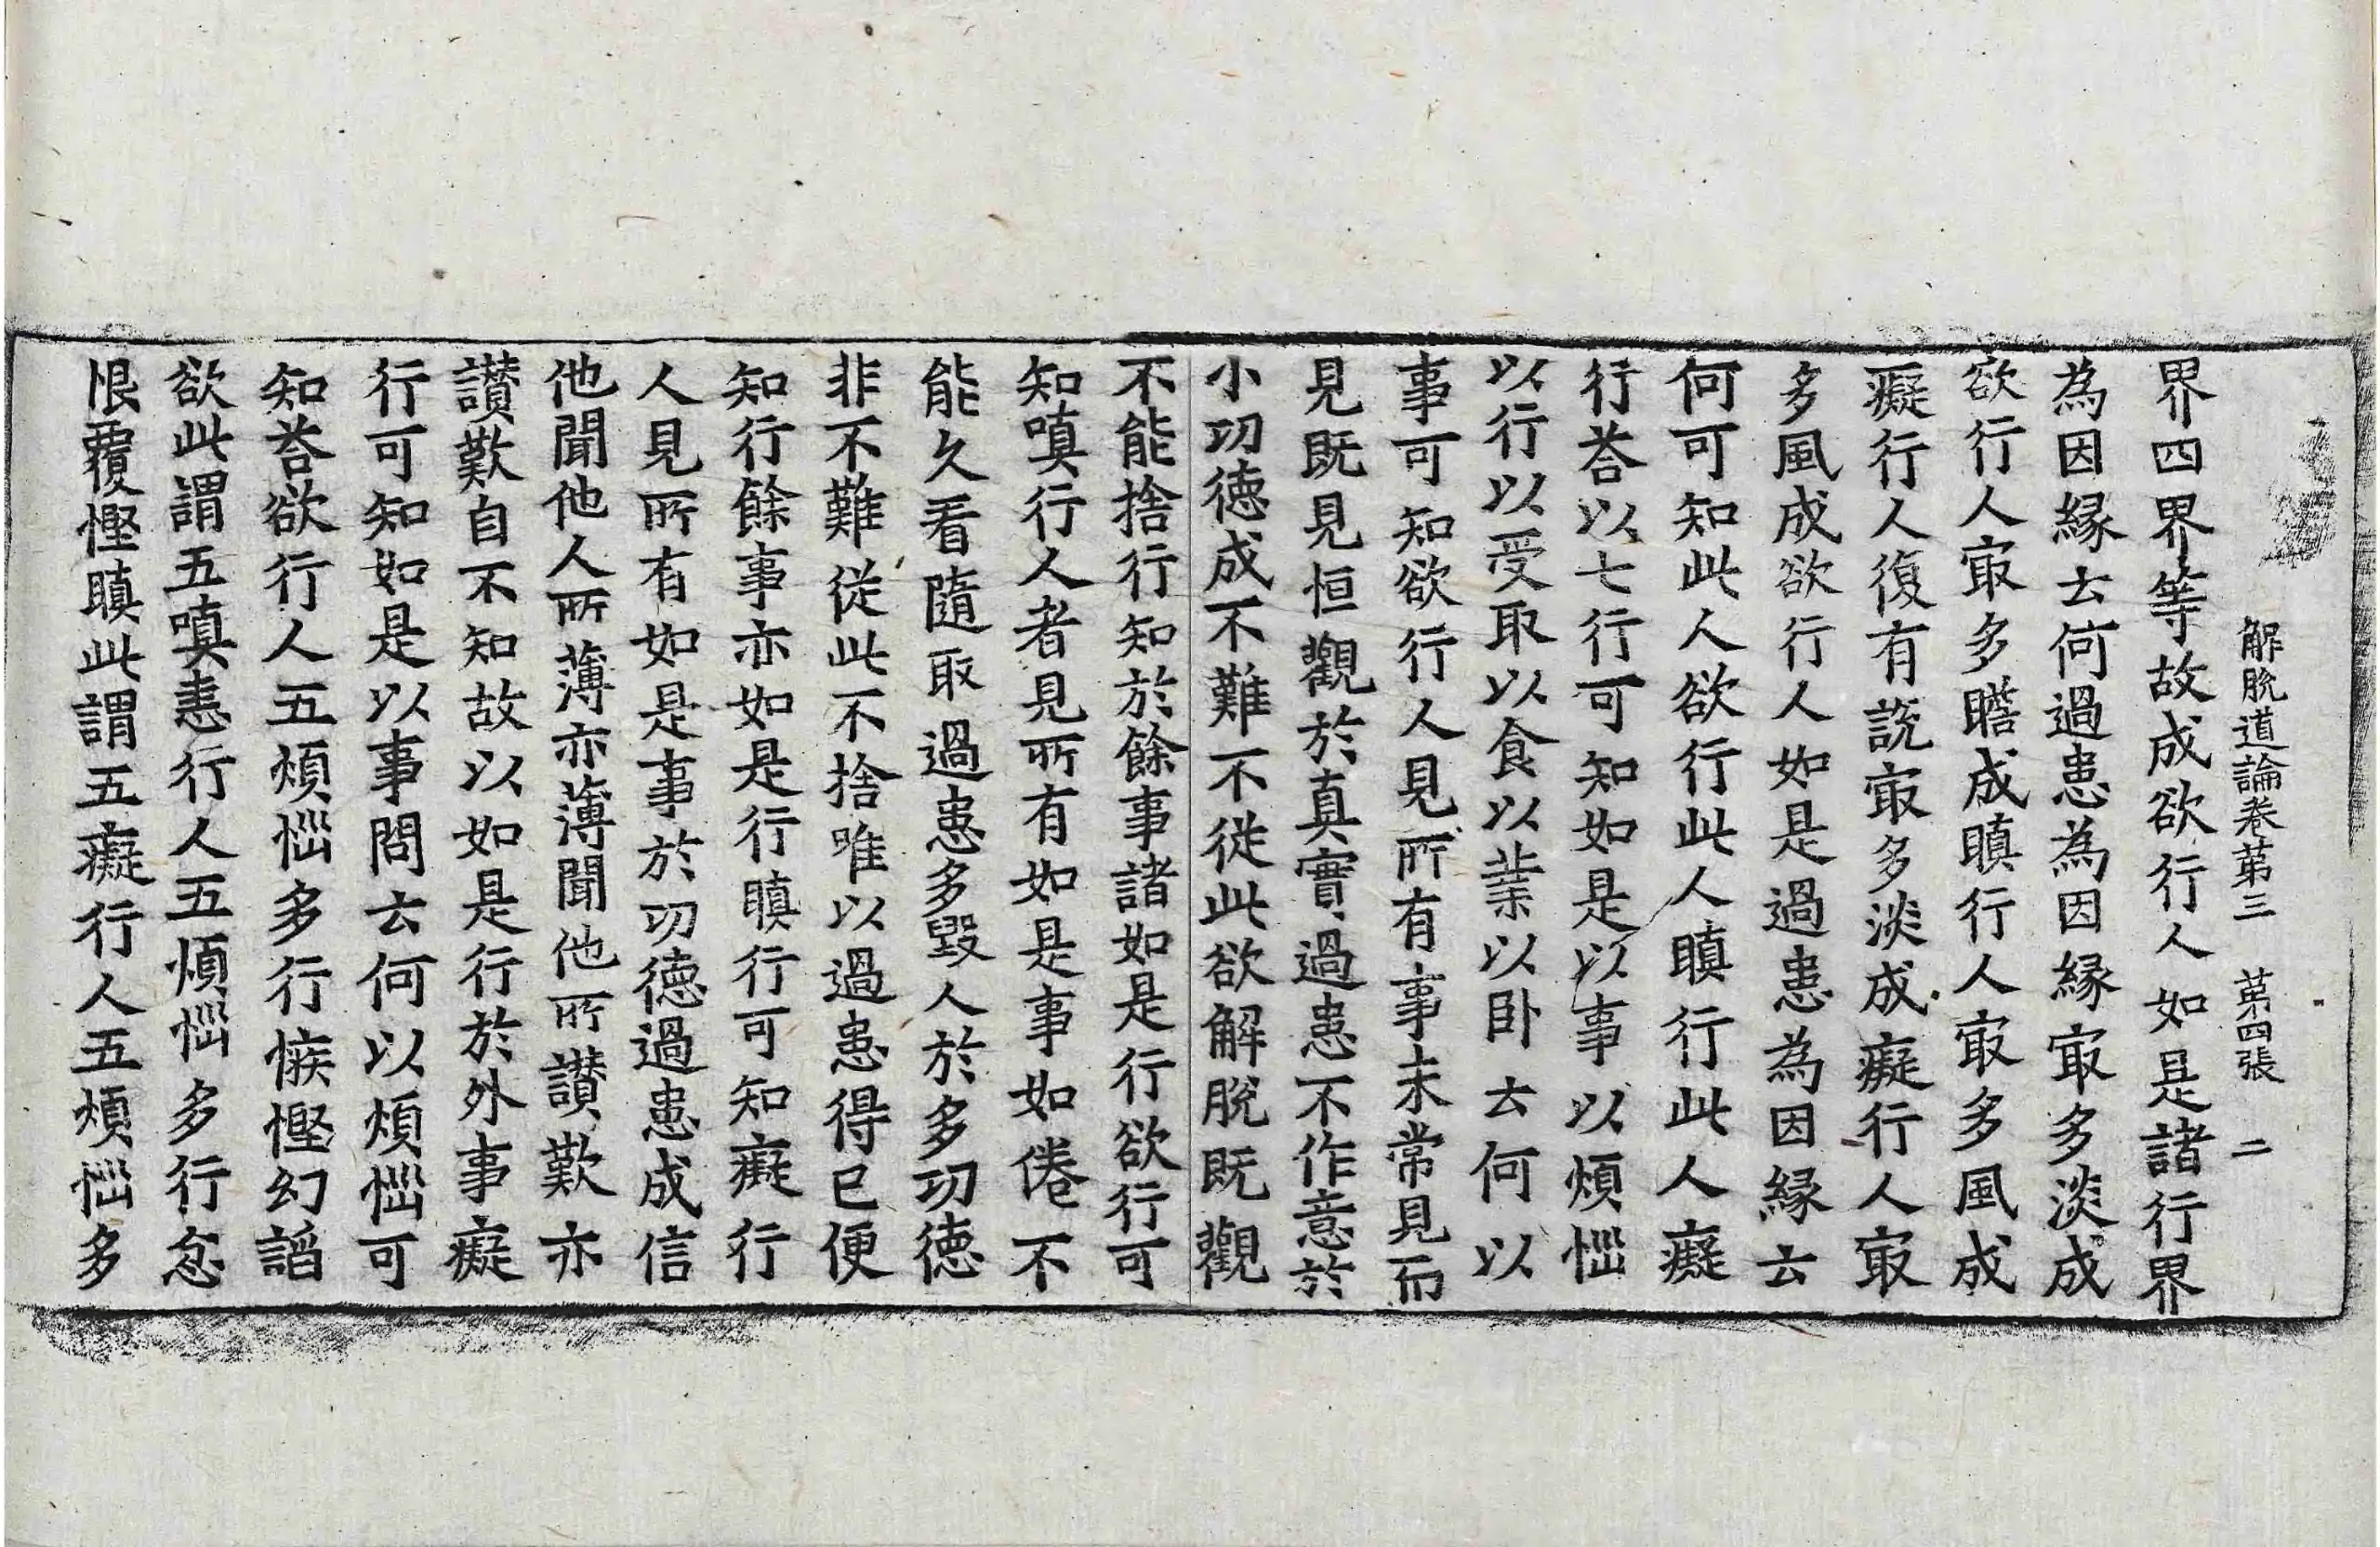 解脫道論卷第三　第四張　二
界四界等故成欲行人如是諸行界
為因緣去何過患為因緣㝡多淡成
欲行人㝡多瞻成瞋行人㝡多風成
癡行人復有說㝡多淡成癡行人㝡
多風成欲行人如是過患為因緣去
何可知此人欲行此人瞋行此人癡
行荅以七行可知如是以事以煩惱
以行以受取以食以業以卧去何以
事可知欲行人見所有事未常見而
見既見恒觀於真實過患不作意於
小功德成不難不從此欲解脫既觀
不能捨行知於餘事諸如是行欲行可
知嗔行人者見所有如是事如倦不
能久看隨取過患多毀人於多功德
非不難從此不捨唯以過患得已便
知行餘事亦如是行瞋行可知癡行
人見所有如是事於功德過患成信
他聞他人所薄亦薄聞他所讃歎亦
讃歎自不知故以如是行於外事癡
行可知如是以事問去何以煩惱可
知荅欲行人五煩惱多行慱慳幻諂
欲此謂五嗔恚行人五煩惱多行忿
恨覆慳瞋此謂五癡行人五煩惱多